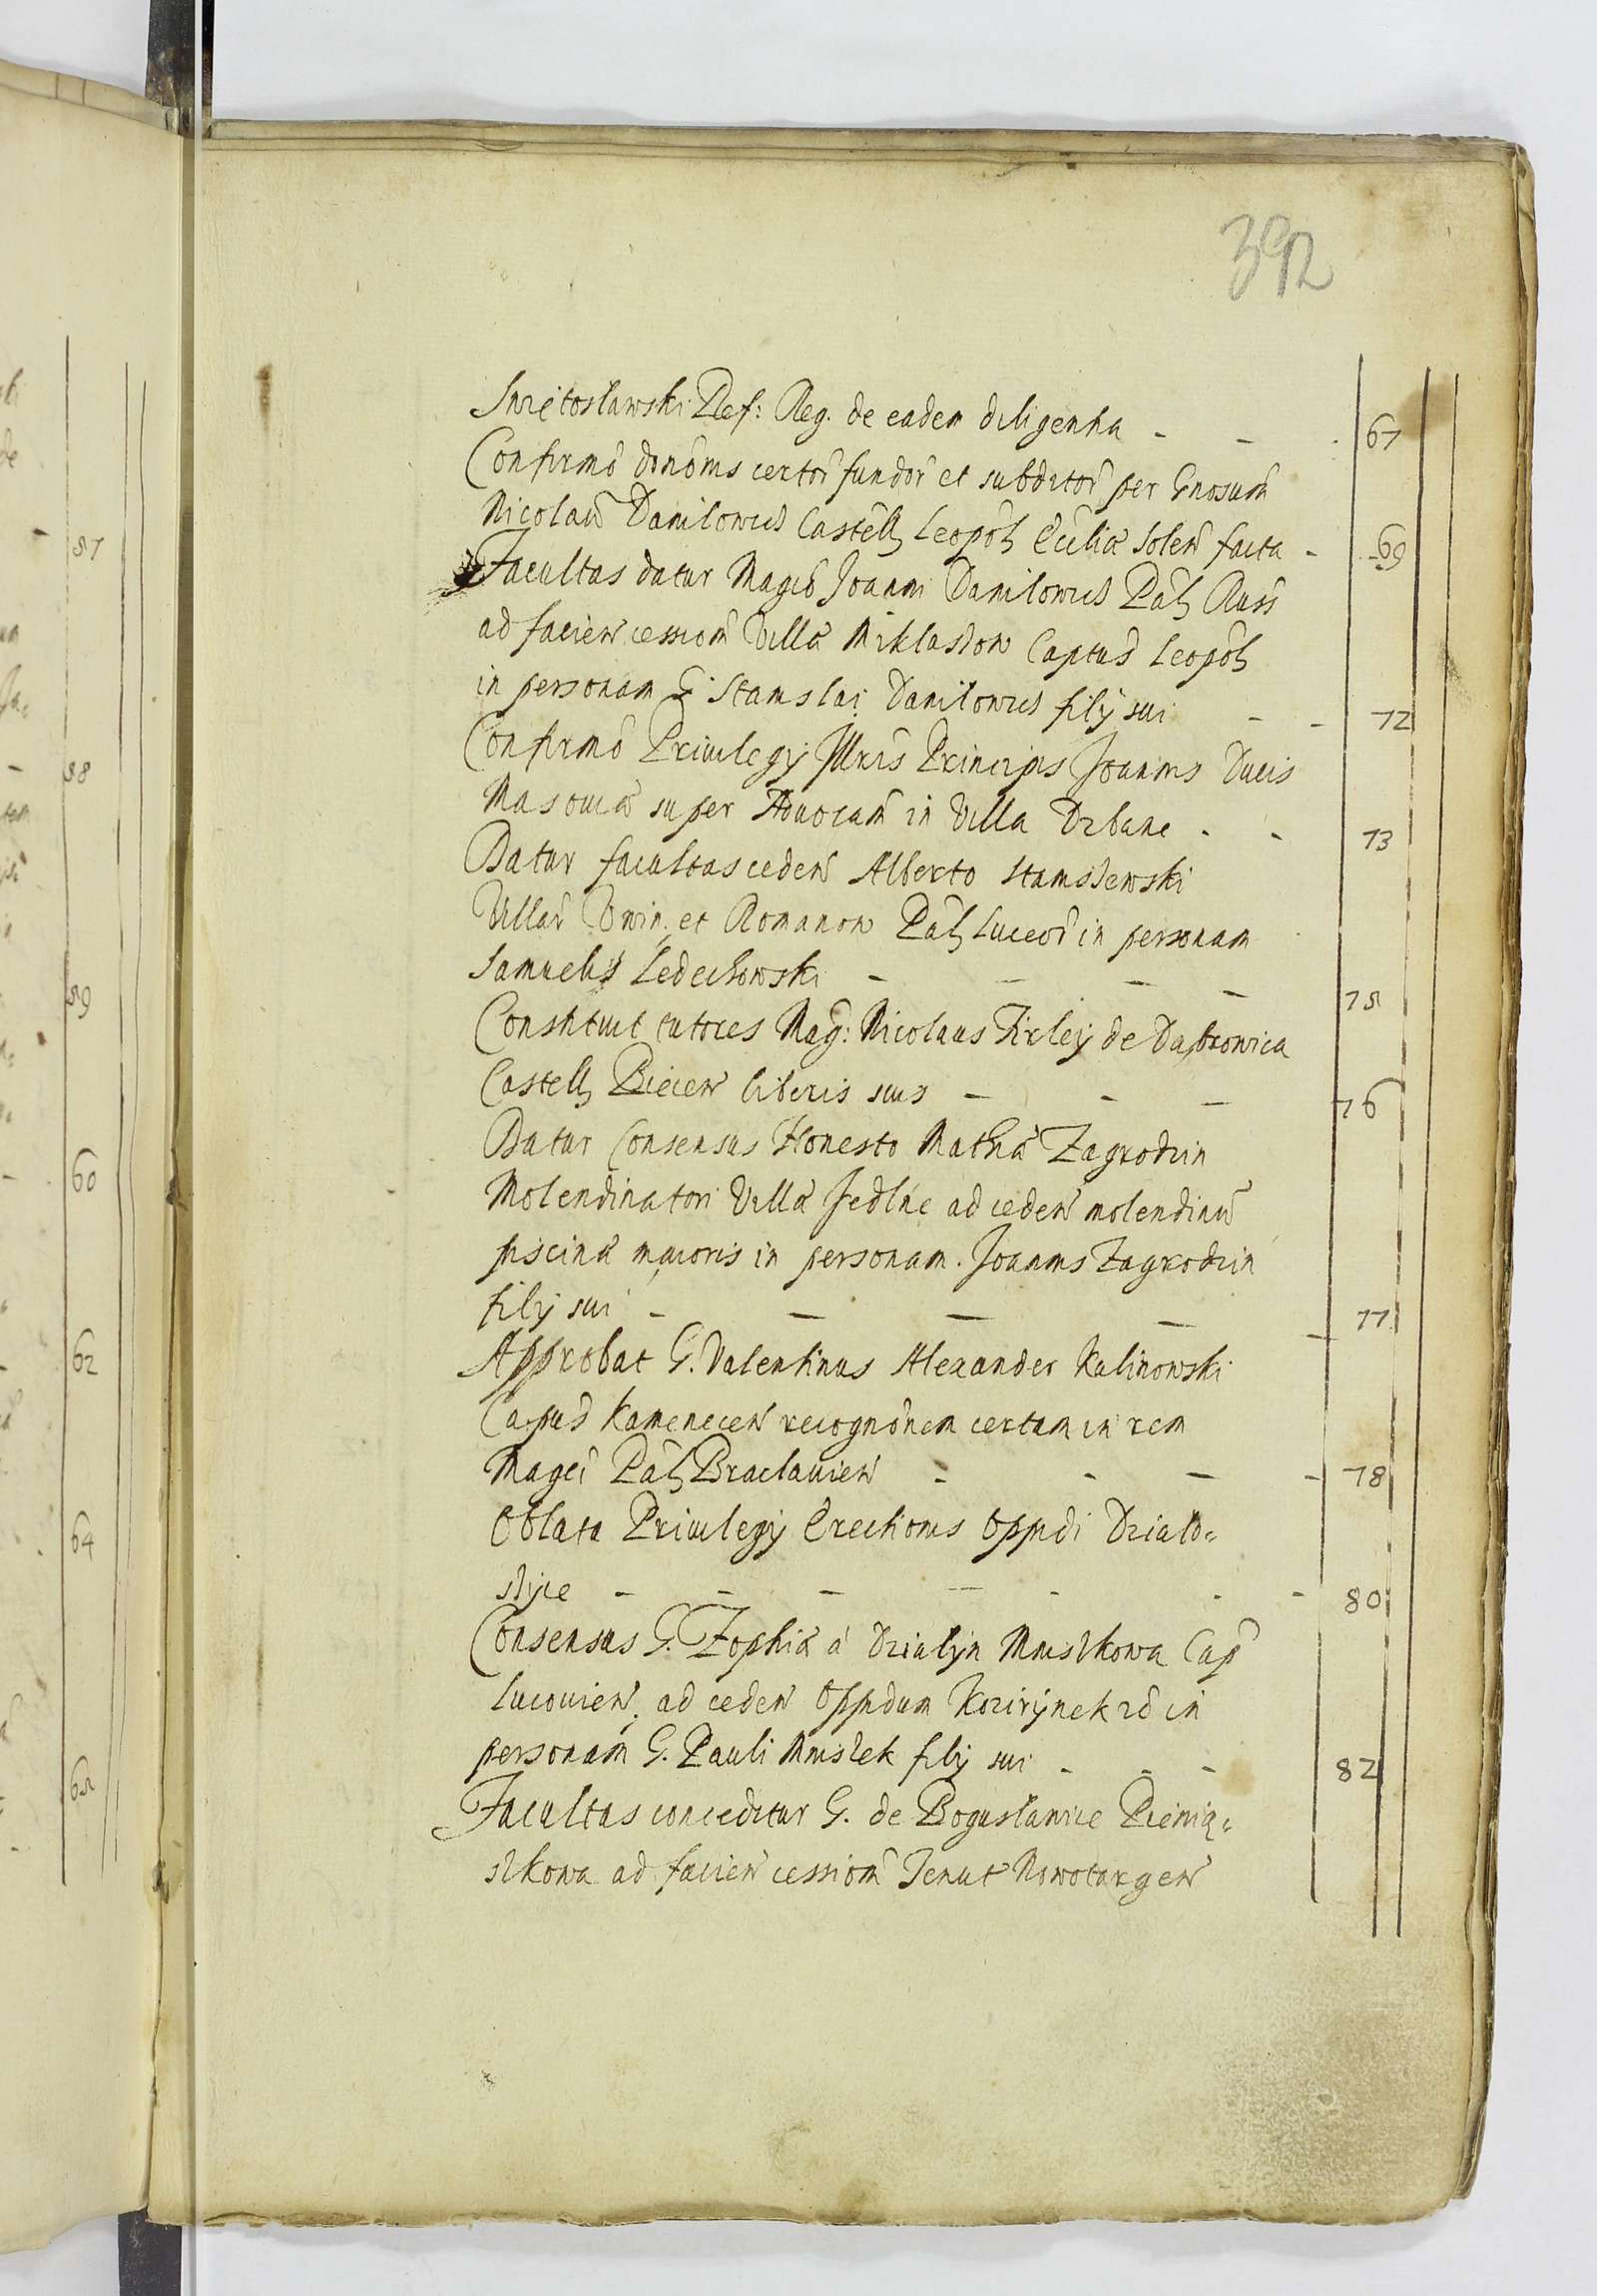 392
Swiętosławski Ref: Reg. de eadem diligentia - - - 67
Confirmō donōnis certor̄ fundor̄ et subditor̄ per Gnosum̄
Nicolaū Daniłowicż Castell Leopol Ecclīæ Solen̄ facta - 69
Facultas datur Magcō Joanni Daniłowicż Pal Russ̄
ad facien̄ cessiom̄ Villæ Miklaszow Captus Leopol
in personam G. Stanislai Daniłowicż filij sui - - 72
Confirmō Priuilegij Jllris̄ Principis Joannis Ducis
Masouiæ super Aduocam̄ in Villa Dzbane - - 73
Datur facultas ceden̄ Alberto Staniszewski
Villar̄ Dwin, et Romanow Pal Luceor̄ in personam
Samuelis Ledechowski - - - - 75
Constituit tutores Mag: Nicolaus Firleij de Dąbrowica
Castell Biecen̄ liberis suis - - - 76
Datur Consensus Honesto Mathiæ Zagrodzin
Molendinatori Villæ Jedlne ad ceden̄ molendinū
piscinæ maioris in personam Joannis Zagrodzin
filij sui - - - - - 77
Approbat G. Valentinus Alexander Kalinowski
Capus Kamenecen̄ recognōnem certam in rem
Magci Pal Braclauien̄ - - - - 78
Oblata Priuilegij Erectionis Oppidi Działo-
szijce - - - - - - - 80
Consensus G. Zophiæ à Dzialijn Mniszkowa Cap̄
Lucouien̄, ad ceden̄ Oppidum Kozirijnek zd in
personam̄ G. Pauli Mniszek filij sui - - - 82
Facultas conceditur G. de Bogusławice Pieniąz-
szkowa ad facien̄ cessiom̄ Tenut Nowotargen̄
57
58
59
60
62
64
65